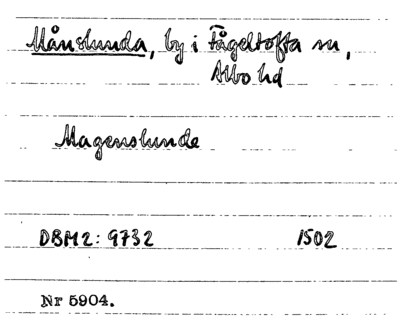 Månslunda, by i Fågeltofta sn,
Albo hd
Magenslunde
DBM2: 9732 1502
Nr 5904.